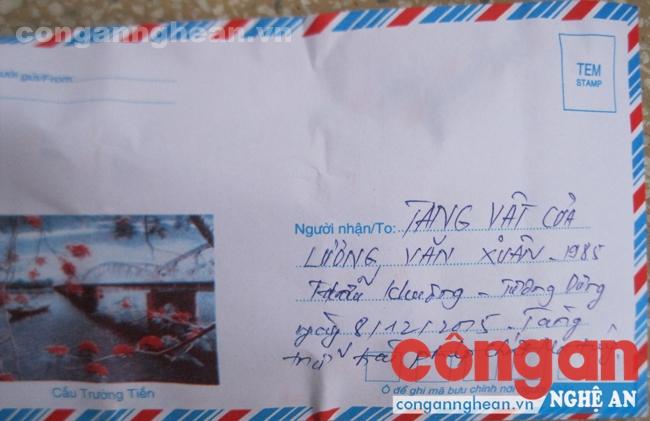 congannghean.vn
TEM
STAMP
Người gửi/From:
Người nhận/To: TANG VẬT CỦA
LƯƠNG VĂN XUÂN - 1985
Khương - Tương Dương
ngày 8/12/2015 - Tàng
trữ trái phép
Cầu Trường Tiền
Ô để ghi mã bưu chính nơi
côngan
NGHỆ AN
congannghean.vn